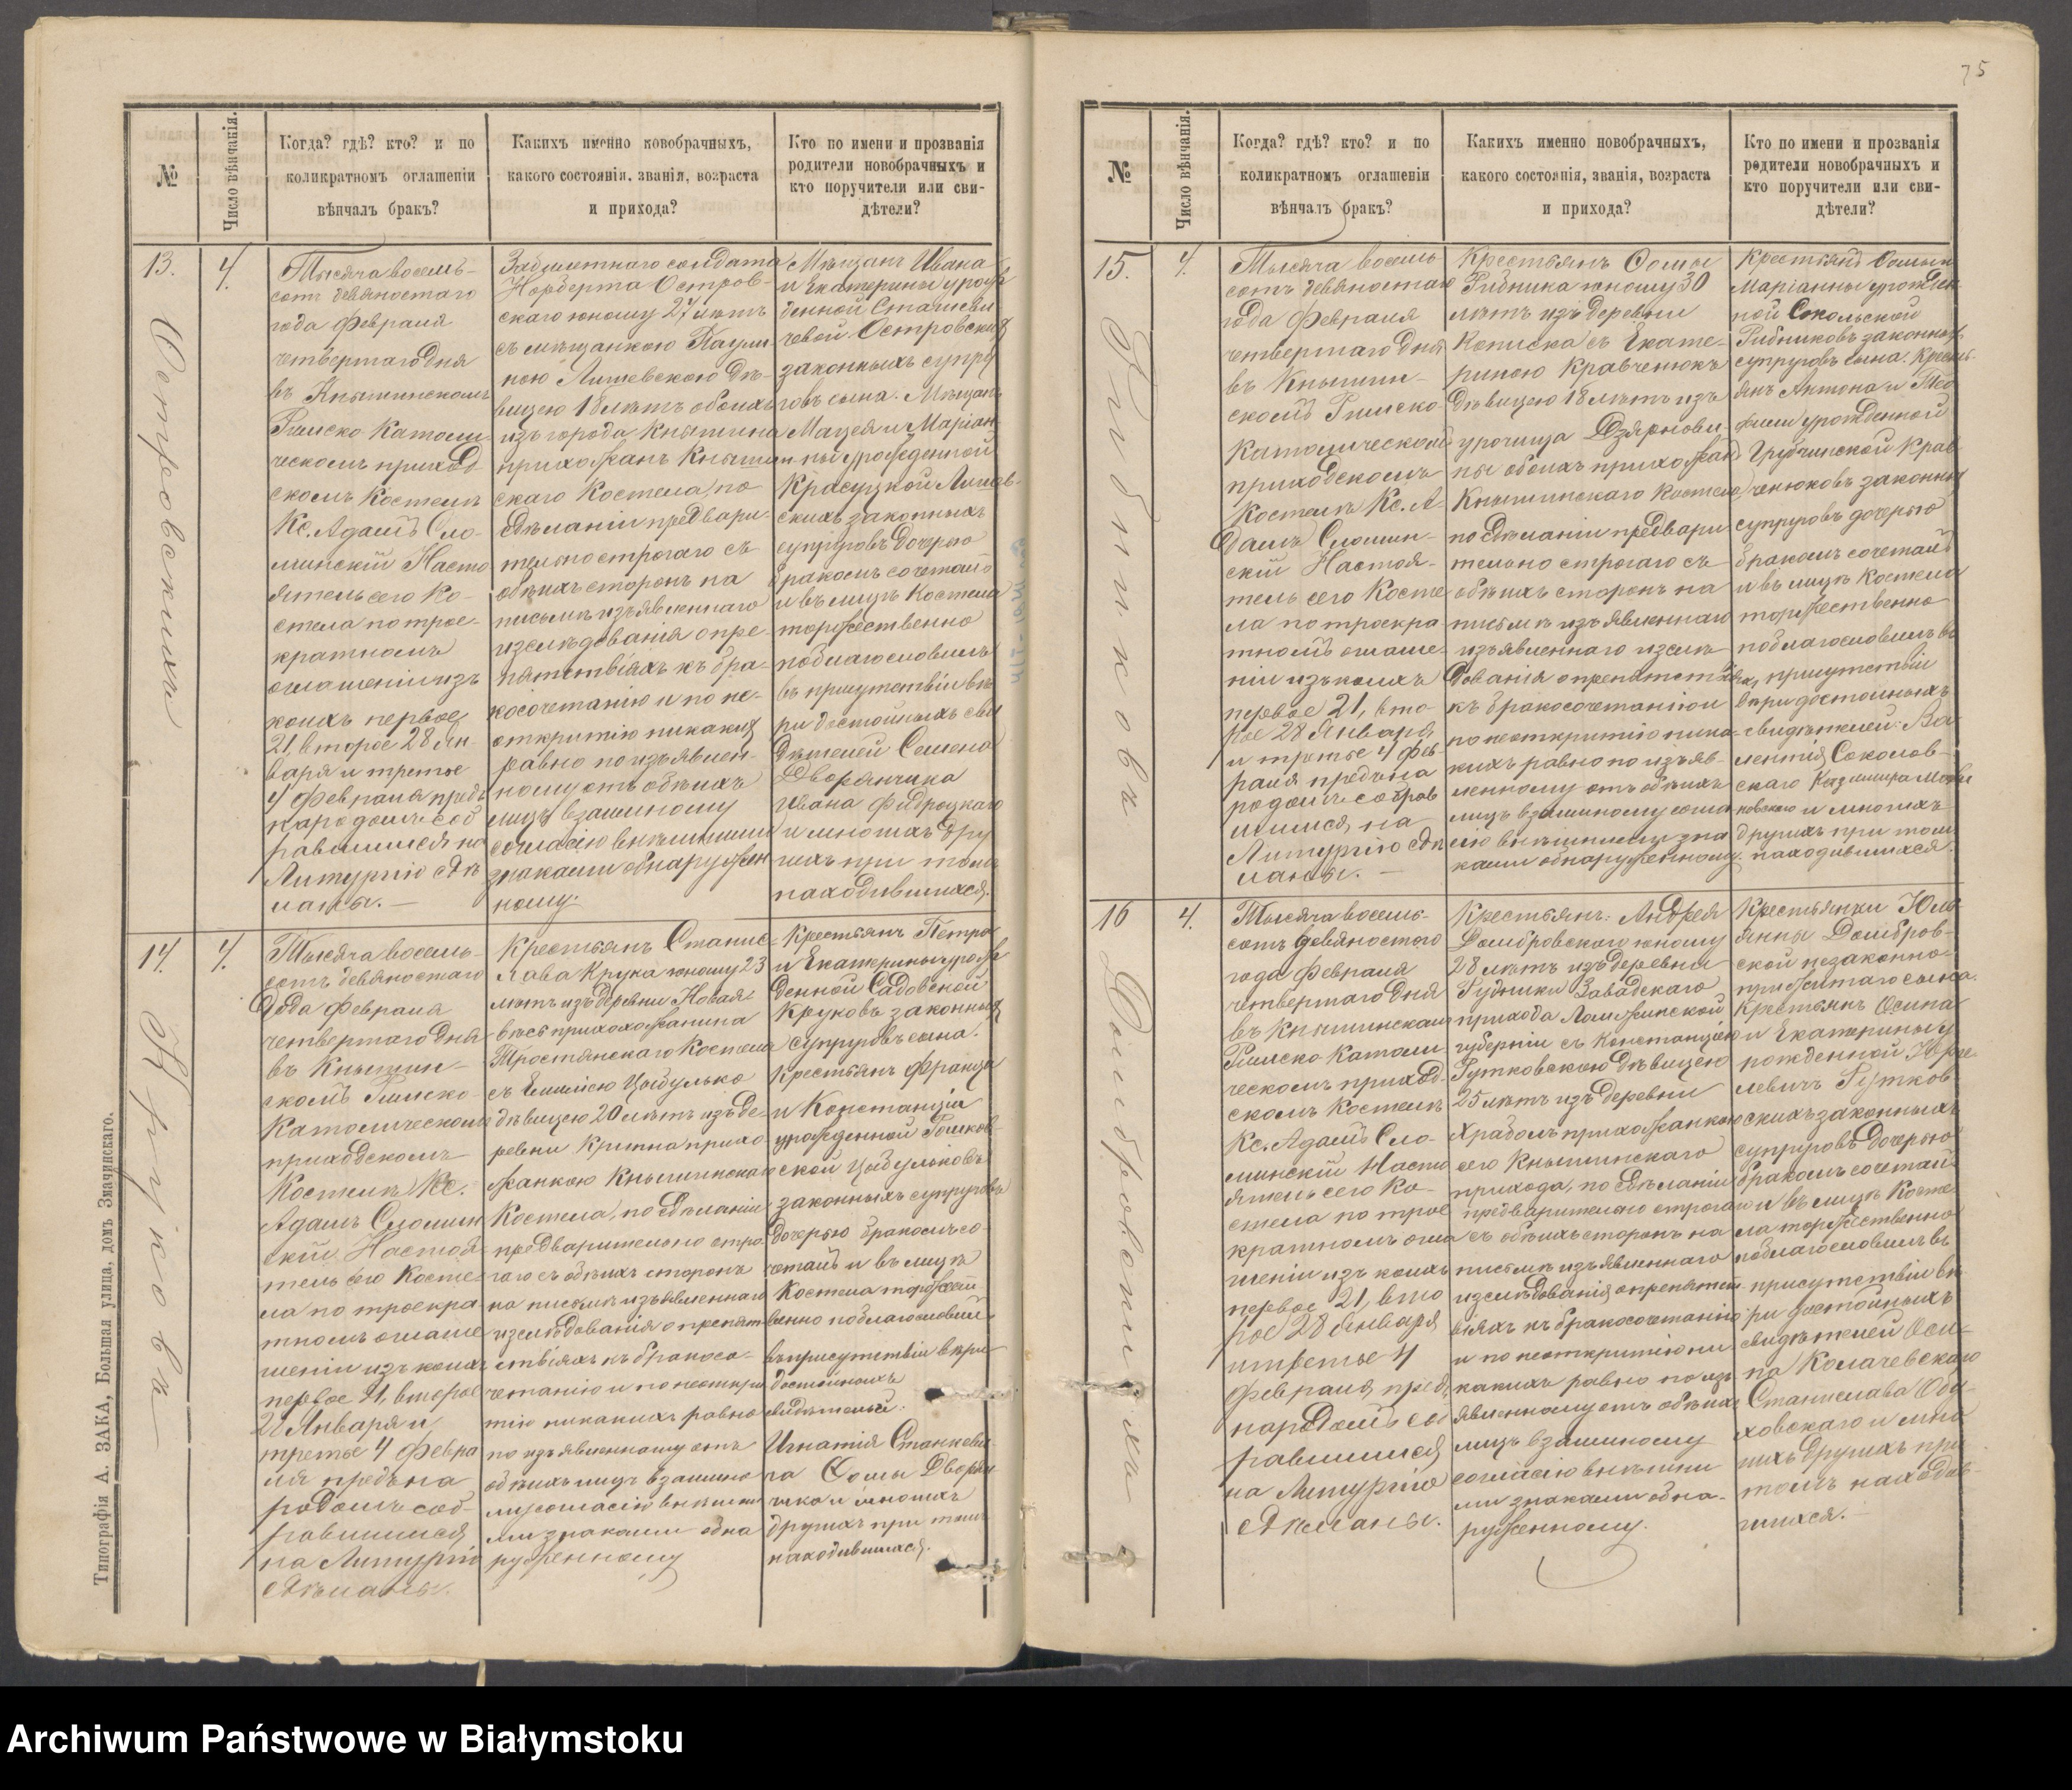 75
№
Число вѣнчанія.
Когда? гдѣ? кто? и по
коликратномъ оглашеніи
вѣнчалъ бракъ?
Какихъ именно новобрачныхъ,
какого состоянія, званія, возраста
и прихода?
Кто по имени и прозванія
родители новобрачныхъ и
кто поручители или сви-
дѣтели?
13.
4.
Островскихъ
Тысяча восемь-
сотъ девяностаго
года Февраля
четвертаго дня
въ Кнышинскомъ
Римско Католи-
ческомъ приход-
скомъ Костелѣ
Кс. Адамъ Сло-
минскій Насто
ятель сего Ко-
стела по трое-
кратномъ
оглашеніи изъ
коихъ первое
21, второе 28 Ян
варя и третье
4 Февраля предъ
народомъ соб
равшимся на
Литургію сдѣ
ланы.
Забилетнаго солдата
Норберта Остров-
скаго юношу 27 лѣтъ
съ мѣщанкою Паули-
ною Лишевскою дѣ-
вицею 18 лѣтъ обоихъ
изъ города Кнышина
прихожанъ Кнышин-
скаго Костела, по
сдѣланіи предвари-
тельно строгаго съ
обѣихъ сторонъ на
письмѣ изъявленнаго
изслѣдованія о пре-
пятствіяхъ къ бра-
косочетанію и по не-
открытію никакихъ
равно по изъявлен-
ному отъ обѣихъ
лицъ взаимному
согласію внѣшними
знаками обнаружен
ному.
Мѣщанъ Ивана
и Екатерины урож
денной Сташеви
чевой Островскихъ
законныхъ супру
говъ сына. Мѣщанъ
Мацея и Маріан-
ны урожденной
Красуцкой Лишев-
скихъ законныхъ
супруговъ дочерью
бракомъ сочеталъ
и въ лицѣ Костела
торжественно
поблагословилъ
въ присутствіи вѣ
ри достойныхъ сви
дѣтелей Семена
Дворянчика
Ивана Фидроцкаго
и многихъ дру
гихъ при томъ
находившихся.
14.
4.
Крукова
Тысяча восемь-
сотъ девяностаго
года Февраля
четвертаго дня
въ Кнышин-
скомъ Римско
Католическомъ
приходскомъ
Костелѣ Кс.
Адамъ Сломин
скій Настоя-
тель сего Косте-
ла по троекра
тномъ оглаше
шеніи изъ коихъ
первое 21, второе
28 Января и
третье 4 Февра
ля предъ на
родомъ соб-
равшимся
на Литургію
сдѣланы.
Крестьянъ Станис-
лава Крука юношу 23
лѣтъ изъ деревни Новая-
весь прихожанина
Тростянскаго Костела
съ Емилією Цыбулько
дѣвицею 20 лѣтъ изъ де-
ревни Крипна прихо
жанкою Кнышинскаго
Костела, по сдѣланіи
предварительно стро-
гаго съ обѣихъ сторонъ
на письмѣ изъявленнаго
изслѣдованія о препят-
ствіяхъ къ бракосо-
четанію и по неоткры
тію никакихъ равно
по изъявленному отъ
обѣихъ лицъ взаимно
му согласію внѣшни
ми знаками обна
руженному
Крестьянъ Петра
и Екатерины урож
денной Садовской
Круковъ законныхъ
супруговъ сына.
Крестьянъ Франца
и Констанціи
урожденной Рошков-
ской Цыбульковъ
законныхъ супруговъ
дочерью бракомъ со-
четалъ и въ лицѣ
Костела торжест
венно поблагословилъ
въ присутствіи вѣри
достойныхъ
свидѣтелей:
Игнатія Станкеви-
ча Ѳомы Дворян
чика и многихъ
другихъ при томъ
находившихся.
Типографія А. ЗАКА, Большая улица, домъ Значинскаго.
№
Число вѣнчанія.
Когда? гдѣ? кто? и по
коликратномъ оглашеніи
вѣнчалъ бракъ?
Какихъ именно новобрачныхъ,
какого состоянія, званія, возраста
и прихода?
Кто по имени и прозванія
родители новобрачныхъ и
кто поручители или сви-
дѣтели?
15.
4.
Рибникова
Тысяча восемь
сотъ девяностаго
года Февраля
четвертаго дня
въ Кнышин-
скомъ Римско-
Католическомъ
приходскомъ
Костелѣ Кс. А-
дамъ Сломин-
скій Настоя-
тель сего Косте
ла по троекра
тномъ оглаше-
ніи изъ коихъ
первое 21, вто-
рое 28 Января
и третье 4 Фев-
раля предъ на
родомъ собрав
шимся на
Литургію сдѣ
ланы.
Крестьянъ Ѳомы
Рибника юношу 30
лѣтъ изъ деревни
съ Екате-
риною Кравченюкъ
дѣвицею 18 лѣтъ изъ
урочища Дзярнови-
ны обоихъ прихожанъ
Кнышинскаго Костела
по сдѣланіи предвари
тельно строгаго съ
обѣихъ сторонъ на
письмѣ изъявленнаго
изъявленнаго изслѣ
дованія о препятствіяхъ,
къ бракосочетанію и
по неоткрытію ника-
кихъ равно по изъяв-
ленному отъ обѣихъ
лицъ взаимному согла
сію внѣшними зна
ками обнаруженному.
Крестьянъ Ѳомы и
Маріанны урожден-
ной Сокольской
Рибниковъ законныхъ
супруговъ сына. Кресть-
янъ Антона и Тео
филы урожденной
Грубчинской Крав-
ченюковъ законныхъ
супруговъ дочерью
бракомъ сочеталъ
и въ лицѣ Костела
торжественно
поблагословилъ въ
присутствіи
вѣри достойныхъ
свидѣтелей: Ва-
лентія Соколов-
скаго Казимира
и многихъ
другихъ при томъ
находившихся.
16
4.
Домбровскихъ
Тысяча восемь-
сотъ девяностого
года Февраля
четвертаго дня
въ Кнышинскомъ
Римско Католи
ческомъ приход-
скомъ Костелѣ
Кс. Адамъ Сло-
минскій Насто
ятель сего Ко-
стела по трое
кратномъ огла
шеніи изъ коихъ
первое 21, вто
рое 28 Января
и третье 4
Февраля предъ
народомъ со
равшимся
на Литургію
сдѣланы.
Крестьянъ: Андрея
Домбровского юношу
28 лѣтъ изъ деревни
Рудники Завадскаго
прихода Ломжинской
губерніи съ Констанцією
Гутковскою дѣвицею
25 лѣтъ изъ деревни
Храболъ прихожанкою
сего Кнышинскаго
прихода, по сдѣланіи
предварительно строгаго
съ обѣихъ сторонъ на
письмѣ изъявленнаго
изслѣдованія о препятст-
віяхъ къ бракосочетанію
и по неоткрытію ни
какихъ равно по изъ
явленному отъ обѣихъ
лицъ взаимному
согласію внѣшни
ми знаками обна-
руженному.
Крестьянки Юли
янны Домбров-
ской незаконно-
прижитаго сына.
Крестьянъ Осипа
и Екатерины у
рожденной
Гутков
скихъ законныхъ
супруговъ дочерью
бракомъ сочеталъ
и въ лицѣ Косте
ла торжественно
поблагословилъ въ
присутствіи вѣ
ри достойныхъ
свидѣтелей Оси-
па Колачевскаго
Станислава
и мно
гихъ другихъ при
томъ находив-
шихся.
Archiwum Państwowe w Białymstoku